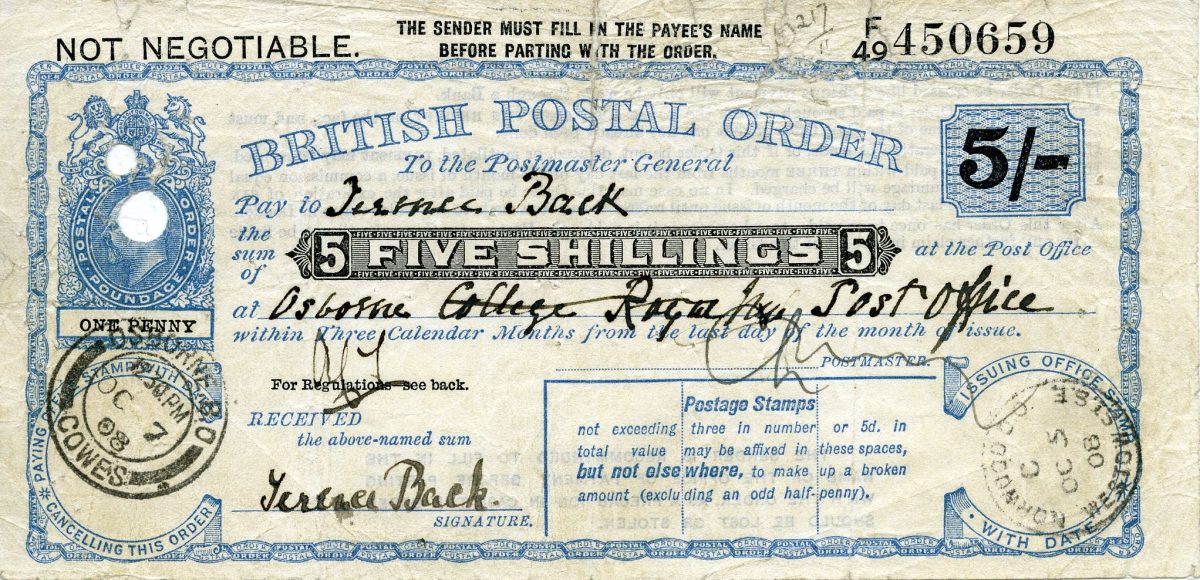 NOT NEGOTIABLE.
THE SENDER MUST FILL IN THE PAYEE'S NAME
BEFORE PARTING WITH THE ORDER.
F/49 450659
BRITISH POSTAL ORDER
To the Postmaster General
5/-
Pay to Terence Back
the sum of
5 FIVE SHILLINGS 5
at the Post Office
at Osborne College Royal Post Office
within Three Calendar Months from the last day of the month of issue.
POSTMASTER.
POSTAL ORDER
POUNDAGE
ONE PENNY
For Regulations see back.
RECEIVED
the above-named sum
Terence Back.
SIGNATURE.
Postage Stamps
not exceeding three in number or 5d. in
total value may be affixed in these spaces,
but not elsewhere, to make up a broken
amount (excluding an odd half-penny).
PAYING
STAMP WITH
CANCELLING THIS ORDER
OSBORNE
COWES
30 PM
OC 7
08
ISSUING OFFICE STAMP
WITH DATE
OC 5
08